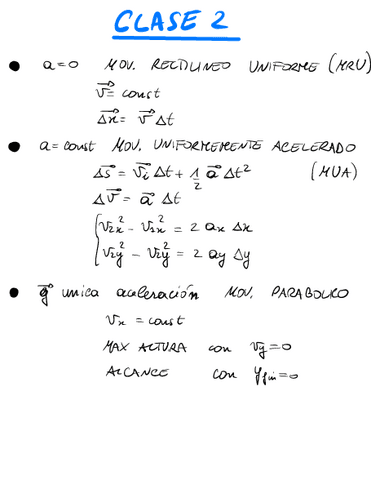 CLASE 2
• a=0 MOV. RECTILINEO UNIFORME (MRU)
v⃗= const
Δx⃗= v⃗ Δt
• a=const MOV. UNIFORMEMENTE ACELERADO
Δs⃗ = v⃗ᵢ Δt + 1/2 a⃗ Δt² (MUA)
Δv⃗ = a⃗ Δt
{ v₂ₓ² - v₁ₓ² = 2 aₓ Δx
v₂y² - v₂y² = 2 ay Δy
• g⃗ unica aceleración MOV. PARABOLICO
vₓ = const
MAX ALTURA con vy=0
ALCANCE con yfin=0